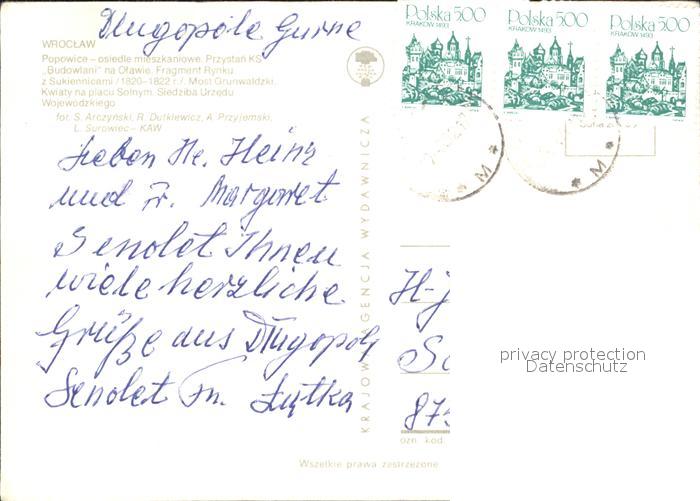 Długopole Gurne
WROCŁAW
Popowice – osiedle mieszkaniowe. Przystań KS
„Budowlani” na Oławie. Fragment Rynku
z Sukiennicami /1820–1822 r./. Most Grunwaldzki.
Kwiaty na placu Solnym. Siedziba Urzędu
Wojewódzkiego
fot. S. Arczyński, R. Dutkiewicz, A. Przyjemski,
L. Surowiec – KAW
Polska 500
KRAKÓW 1493
Polska 500
KRAKÓW 1493
Polska 500
KRAKÓW 1493
* M *
* M *
Lieben He. Heinz
und Fr. Margaret
Sendet Ihnen
wiele herzliche
Grüße aus Długopole
Sendet Fn. Łytka
KRAJOWA AGENCJA WYDAWNICZA
H-j
Sc
875
ozn. kod.
Wszelkie prawa zastrzeżone
privacy protection
Datenschutz